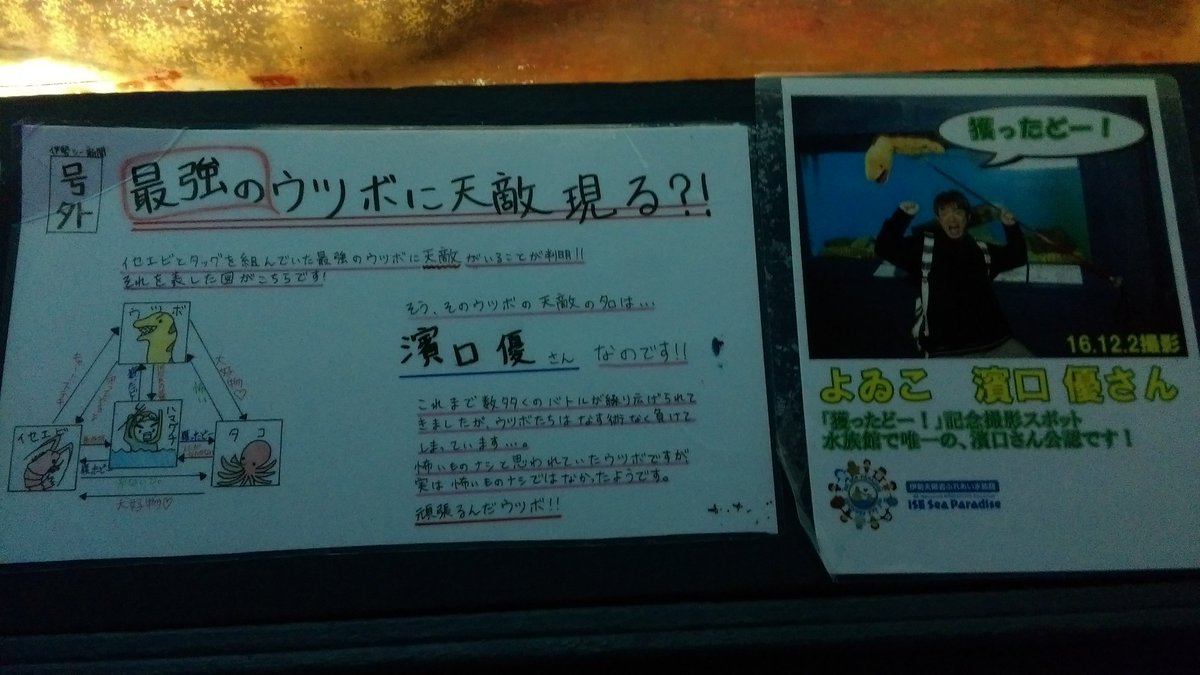 伊勢シー新聞
号外
最強のウツボに天敵現る?!
イセエビとタッグを組んでいた最強のウツボに天敵がいることが判明!!
それを表した図がこちらです!
ウツボ
大好物♡
怖い
イセエビ
ハマグチ
タコ
大好物♡
そう、そのウツボの天敵の名は…
濱口優さん なのです!!
これまで数多くのバトルが繰り広げられて
きましたが、ウツボたちはなす術なく負けて
しまっています…。
怖いものナシと思われていたウツボですが
実は怖いものナシではなかったようです。
頑張るんだウツボ!!
獲ったどー!
16.12.2撮影
よゐこ 濱口 優さん
「獲ったどー!」記念撮影スポット
水族館で唯一の、濱口さん公認です!
伊勢夫婦岩ふれあい水族館
ISE Sea Paradise